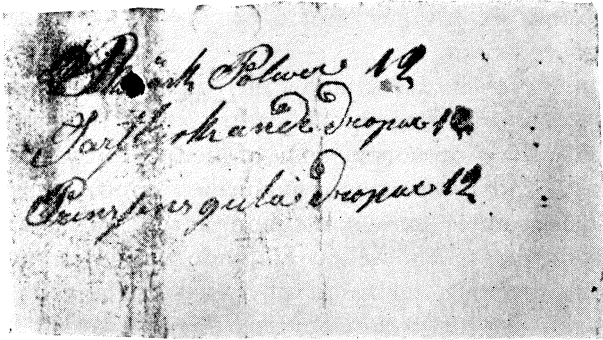 Pulwer 12
Hartstärkande dropar 12
Prinsens gula dropar 12